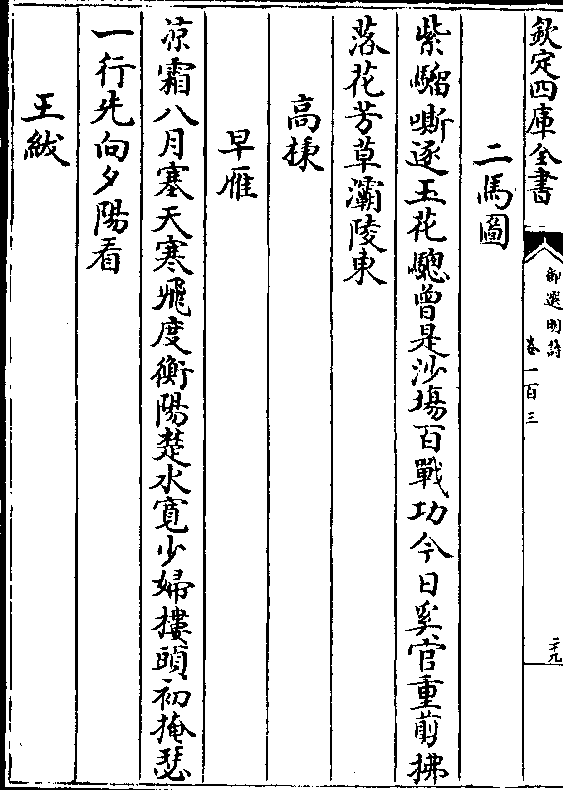 欽定四庫全書
御選明詩
卷一百三
二十九
二馬圖
紫騮嘶逐玉花驄曾是沙塲百戰功今日奚官重剪拂
落花芳草灞陵東
高棅
早雁
凉霜八月塞天寒飛度衡陽楚水寛少婦樓頭初掩瑟
一行先向夕陽看
王紱